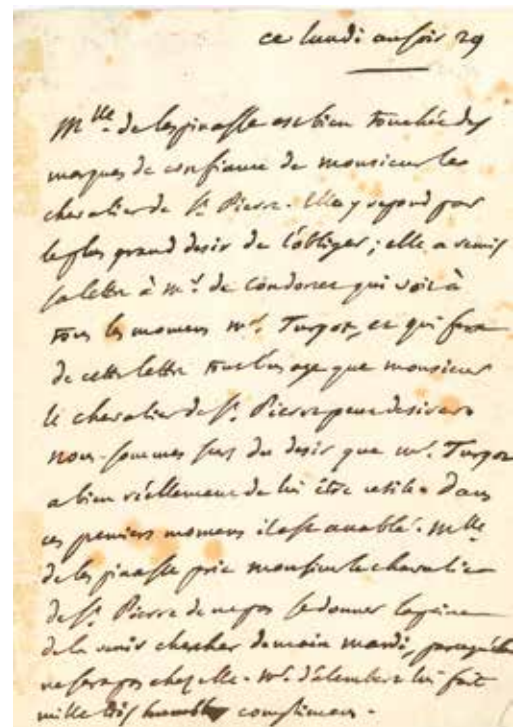 ce lundi au soir 29
Mlle de lespinasse est bien touchée des
marques de confiance de monsieur le
chevalier de St. Pierre. Elle y repond par
le plus grand desir de l'obliger; elle a remis
sa lettre à mr. de Condorcet qui voit à
tous les momens mr. Turgot, et qui fera
de cette lettre tout l'usage que monsieur
le chevalier de St. Pierre peut desirer
nous sommes surs du desir que mr. Turgot
a bien réellement de lui être utile. Dans
ces premiers momens il est accablé. Mlle
de lespinasse prie monsieur le chevalier
de St. Pierre de ne pas se donner la peine
de la venir chercher demain mardi, parcequ'elle
ne sera pas chez elle. mr. d'alembert lui fait
mille très humbles complimens.